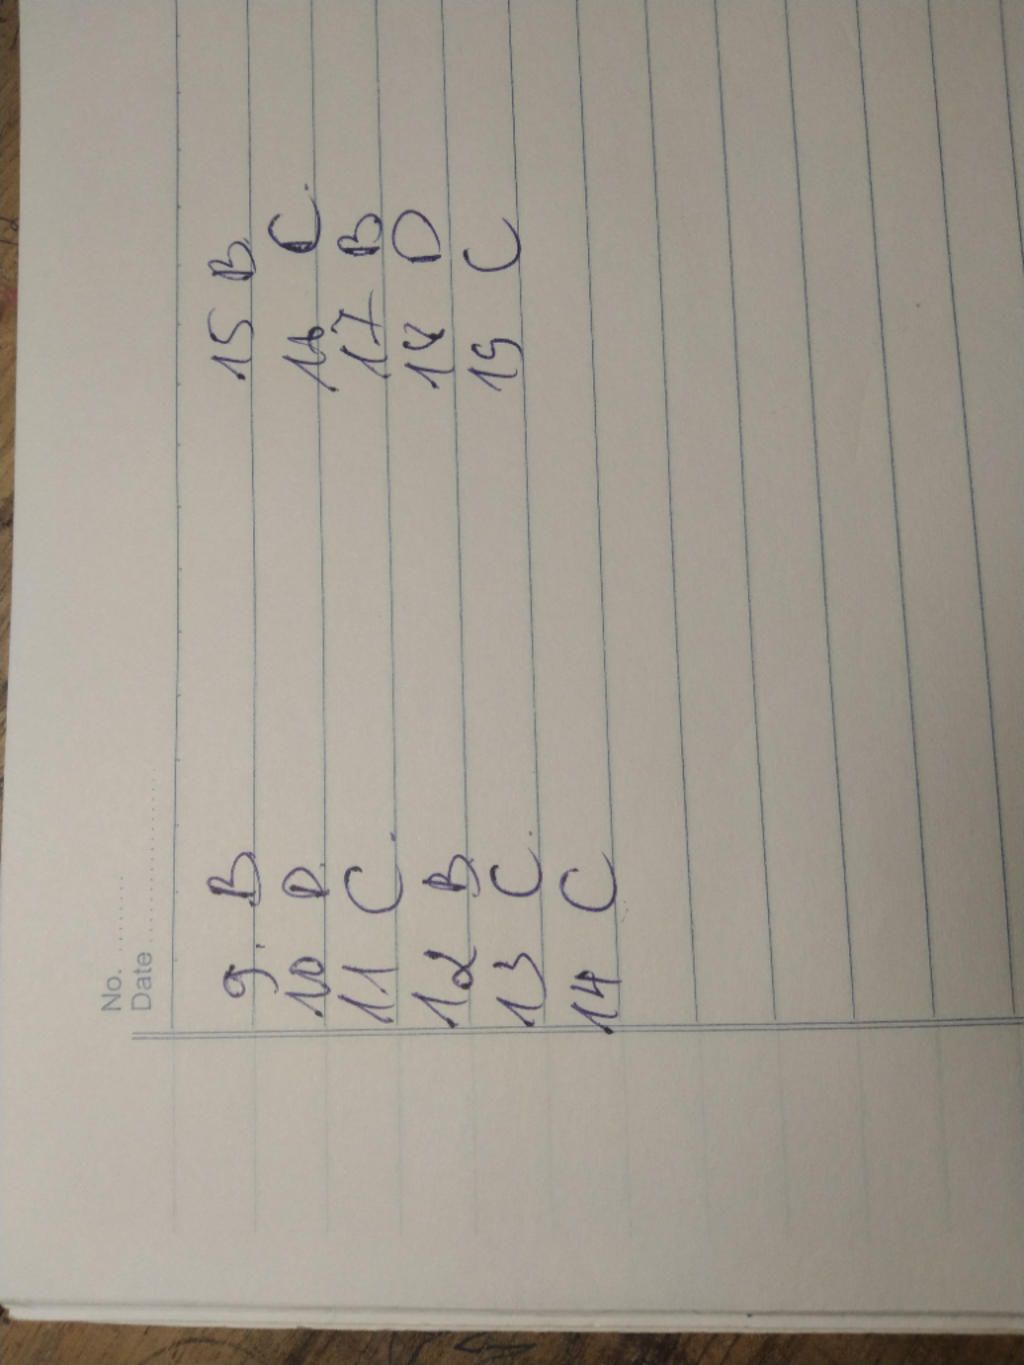 No. ........
Date ....................
9. B
10 D
11 C.
12 B
13 C.
14 C
15 B
16 C.
17 B
18 D
19 C